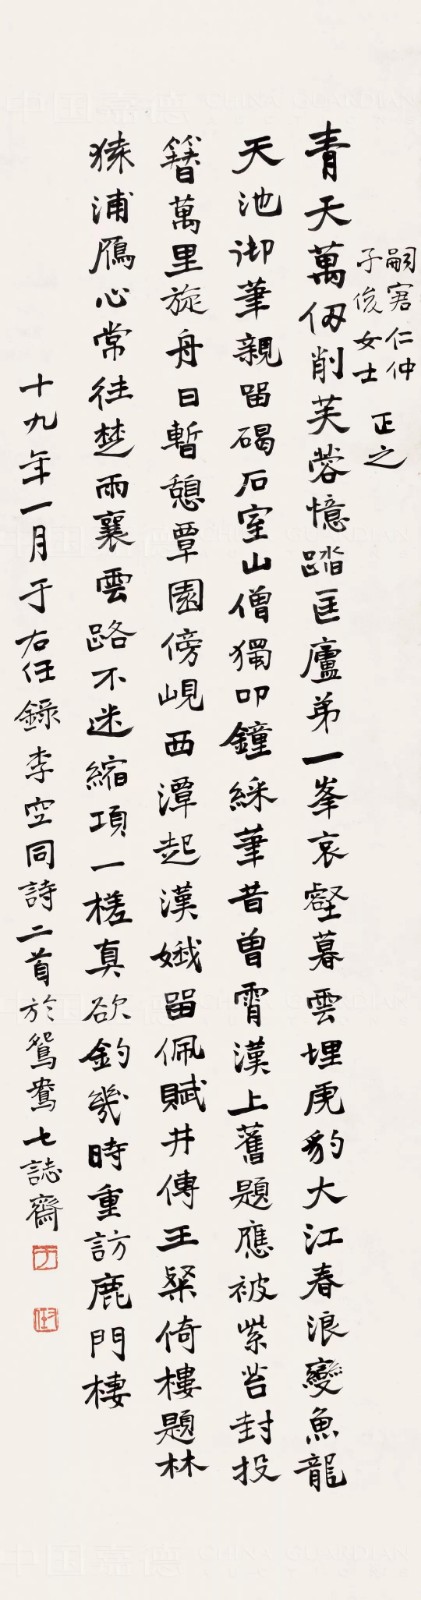 嗣宭仁仲
子俊女士 正之
青天萬仞削芙蓉憶踏匡廬弟一峯哀壑暮雲埋虎豹大江春浪變魚龍
天池御筆親留碣石室山僧獨叩鐘綵筆昔曾霄漢上舊題應被紫苔封投
簪萬里旋舟日暫憩覃園傍峴西潭起漢娥留佩賦井傳王粲倚樓題林
猿浦鴈心常往楚雨襄雲路不迷縮項一槎真欲釣幾時重訪鹿門棲
十九年一月于右任錄李空同詩二首於鴛鴦七誌齋